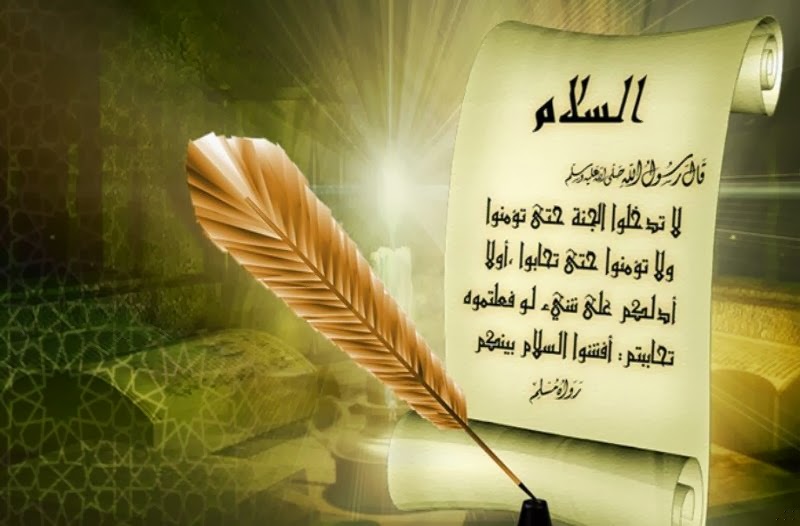 السلام
قال رسول الله صلى الله عليه وسلم
لا تدخلوا الجنة حتى تؤمنوا
ولا تؤمنوا حتى تحابوا ،أولا
أدلكم على شيء لو فعلتموه
تحاببتم : أفشوا السلام بينكم
رواه مسلم